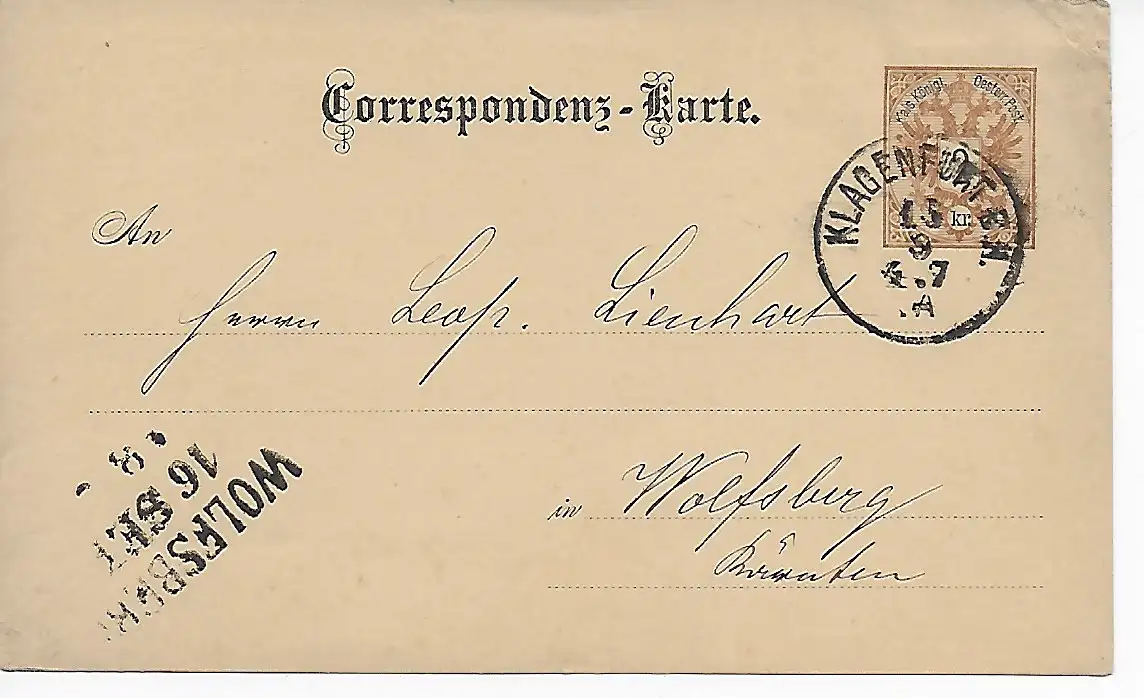 Correspondenz-Karte.
Kais. Königl. Oester. Post
2
kr.
KLAGENFURT B.H.
15
9
4.7
.A
An
Herrn Leop. Lienhart
in Wolfsberg
Kärnten
WOLFSBERG
16 SEPT
8